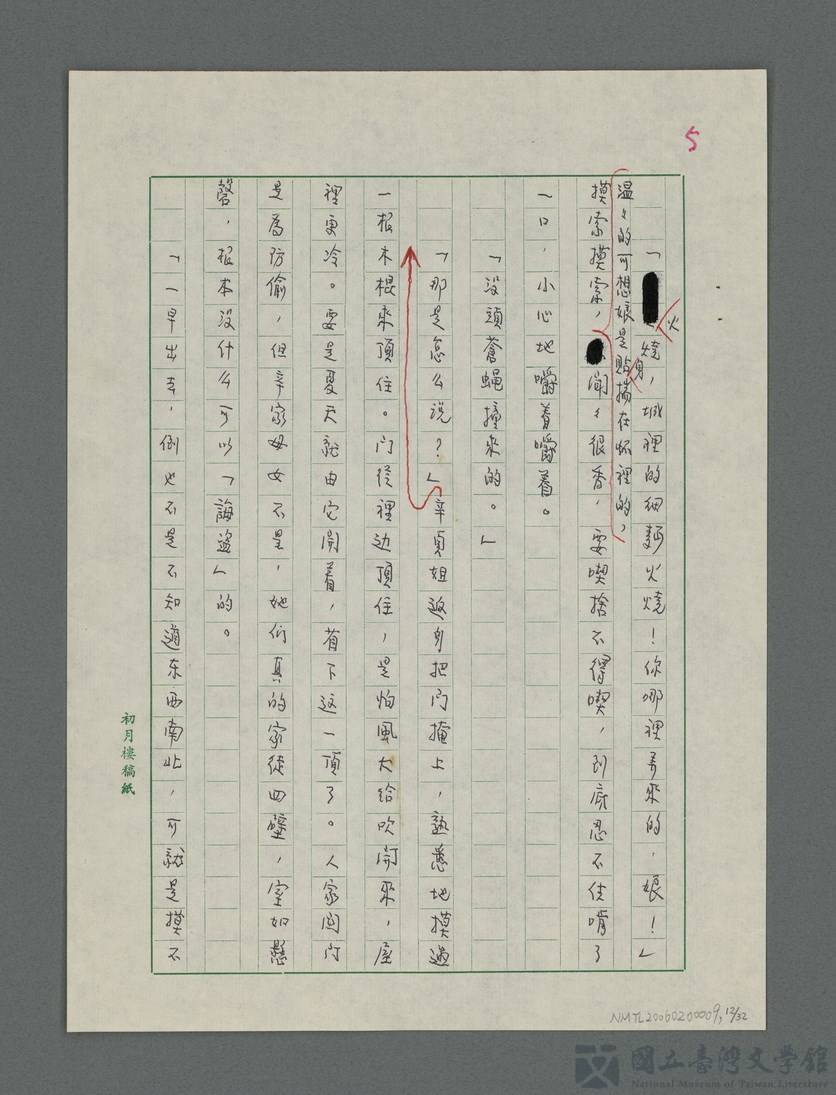 5
「火燒，城裡的細麵火燒！你哪裡弄來的，娘！」
溫々的可想娘是貼身揣在怀裡的，
摸索摸索，聞々很香，要喫捨不得喫，到底忍不住啃了
一口，小心地嚼着嚼着。
「没頭蒼蝇撞來的。」
「那是怎么说？」辛貞姐返身把门掩上，熟悉地摸過
一根木棍來頂住。门從裡边頂住，是怕風大给吹開來，屋
裡更冷。要是夏天就由它開着，省下这一頂了。人家関门
是為防偷，但辛家母女不是，她们真的家徒四壁，室如懸
磬，根本没什么可以「誨盗」的。
「一早出去，倒也不是不知道东西南北，可就是摸不
初月樓稿紙
NMTL20060200009, 12/32
國立臺灣文學館
National Museum of Taiwan Literature